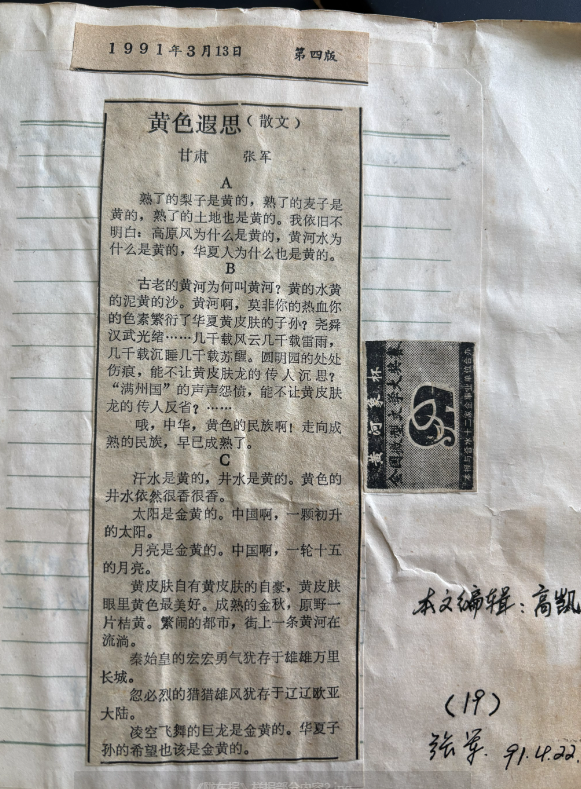 1991年3月13日 第四版
黄色遐思（散文）
甘肃 张军
A
熟了的梨子是黄的，熟了的麦子是
黄的，熟了的土地也是黄的。我依旧不
明白：高原风为什么是黄的，黄河水为
什么是黄的，华夏人为什么也是黄的。
B
古老的黄河为何叫黄河？黄的水黄
的泥黄的沙。黄河啊，莫非你的热血你
的色素繁衍了华夏黄皮肤的子孙？尧舜
汉武光绪……几千载风云几千载雷雨，
几千载沉睡几千载苏醒。圆明园的处处
伤痕，能不让黄皮肤龙的传人沉思？
“满州国”的声声怨愤，能不让黄皮肤
龙的传人反省？……
哦，中华，黄色的民族啊！走向成
熟的民族，早已成熟了。
C
汗水是黄的，井水是黄的。黄色的
井水依然很香很香。
太阳是金黄的。中国啊，一颗初升
的太阳。
月亮是金黄的。中国啊，一轮十五
的月亮。
黄皮肤自有黄皮肤的自豪，黄皮肤
眼里黄色最美好。成熟的金秋，原野一
片桔黄。繁闹的都市，街上一条黄河在
流淌。
秦始皇的宏宏勇气犹存于雄雄万里
长城。
忽必烈的猎猎雄风犹存于辽辽欧亚
大陆。
凌空飞舞的巨龙是金黄的。华夏子
孙的希望也该是金黄的。
黄河象杯
全国微型文学大奖赛
本文编辑：高凯
（19）
张军. 91.4.22.